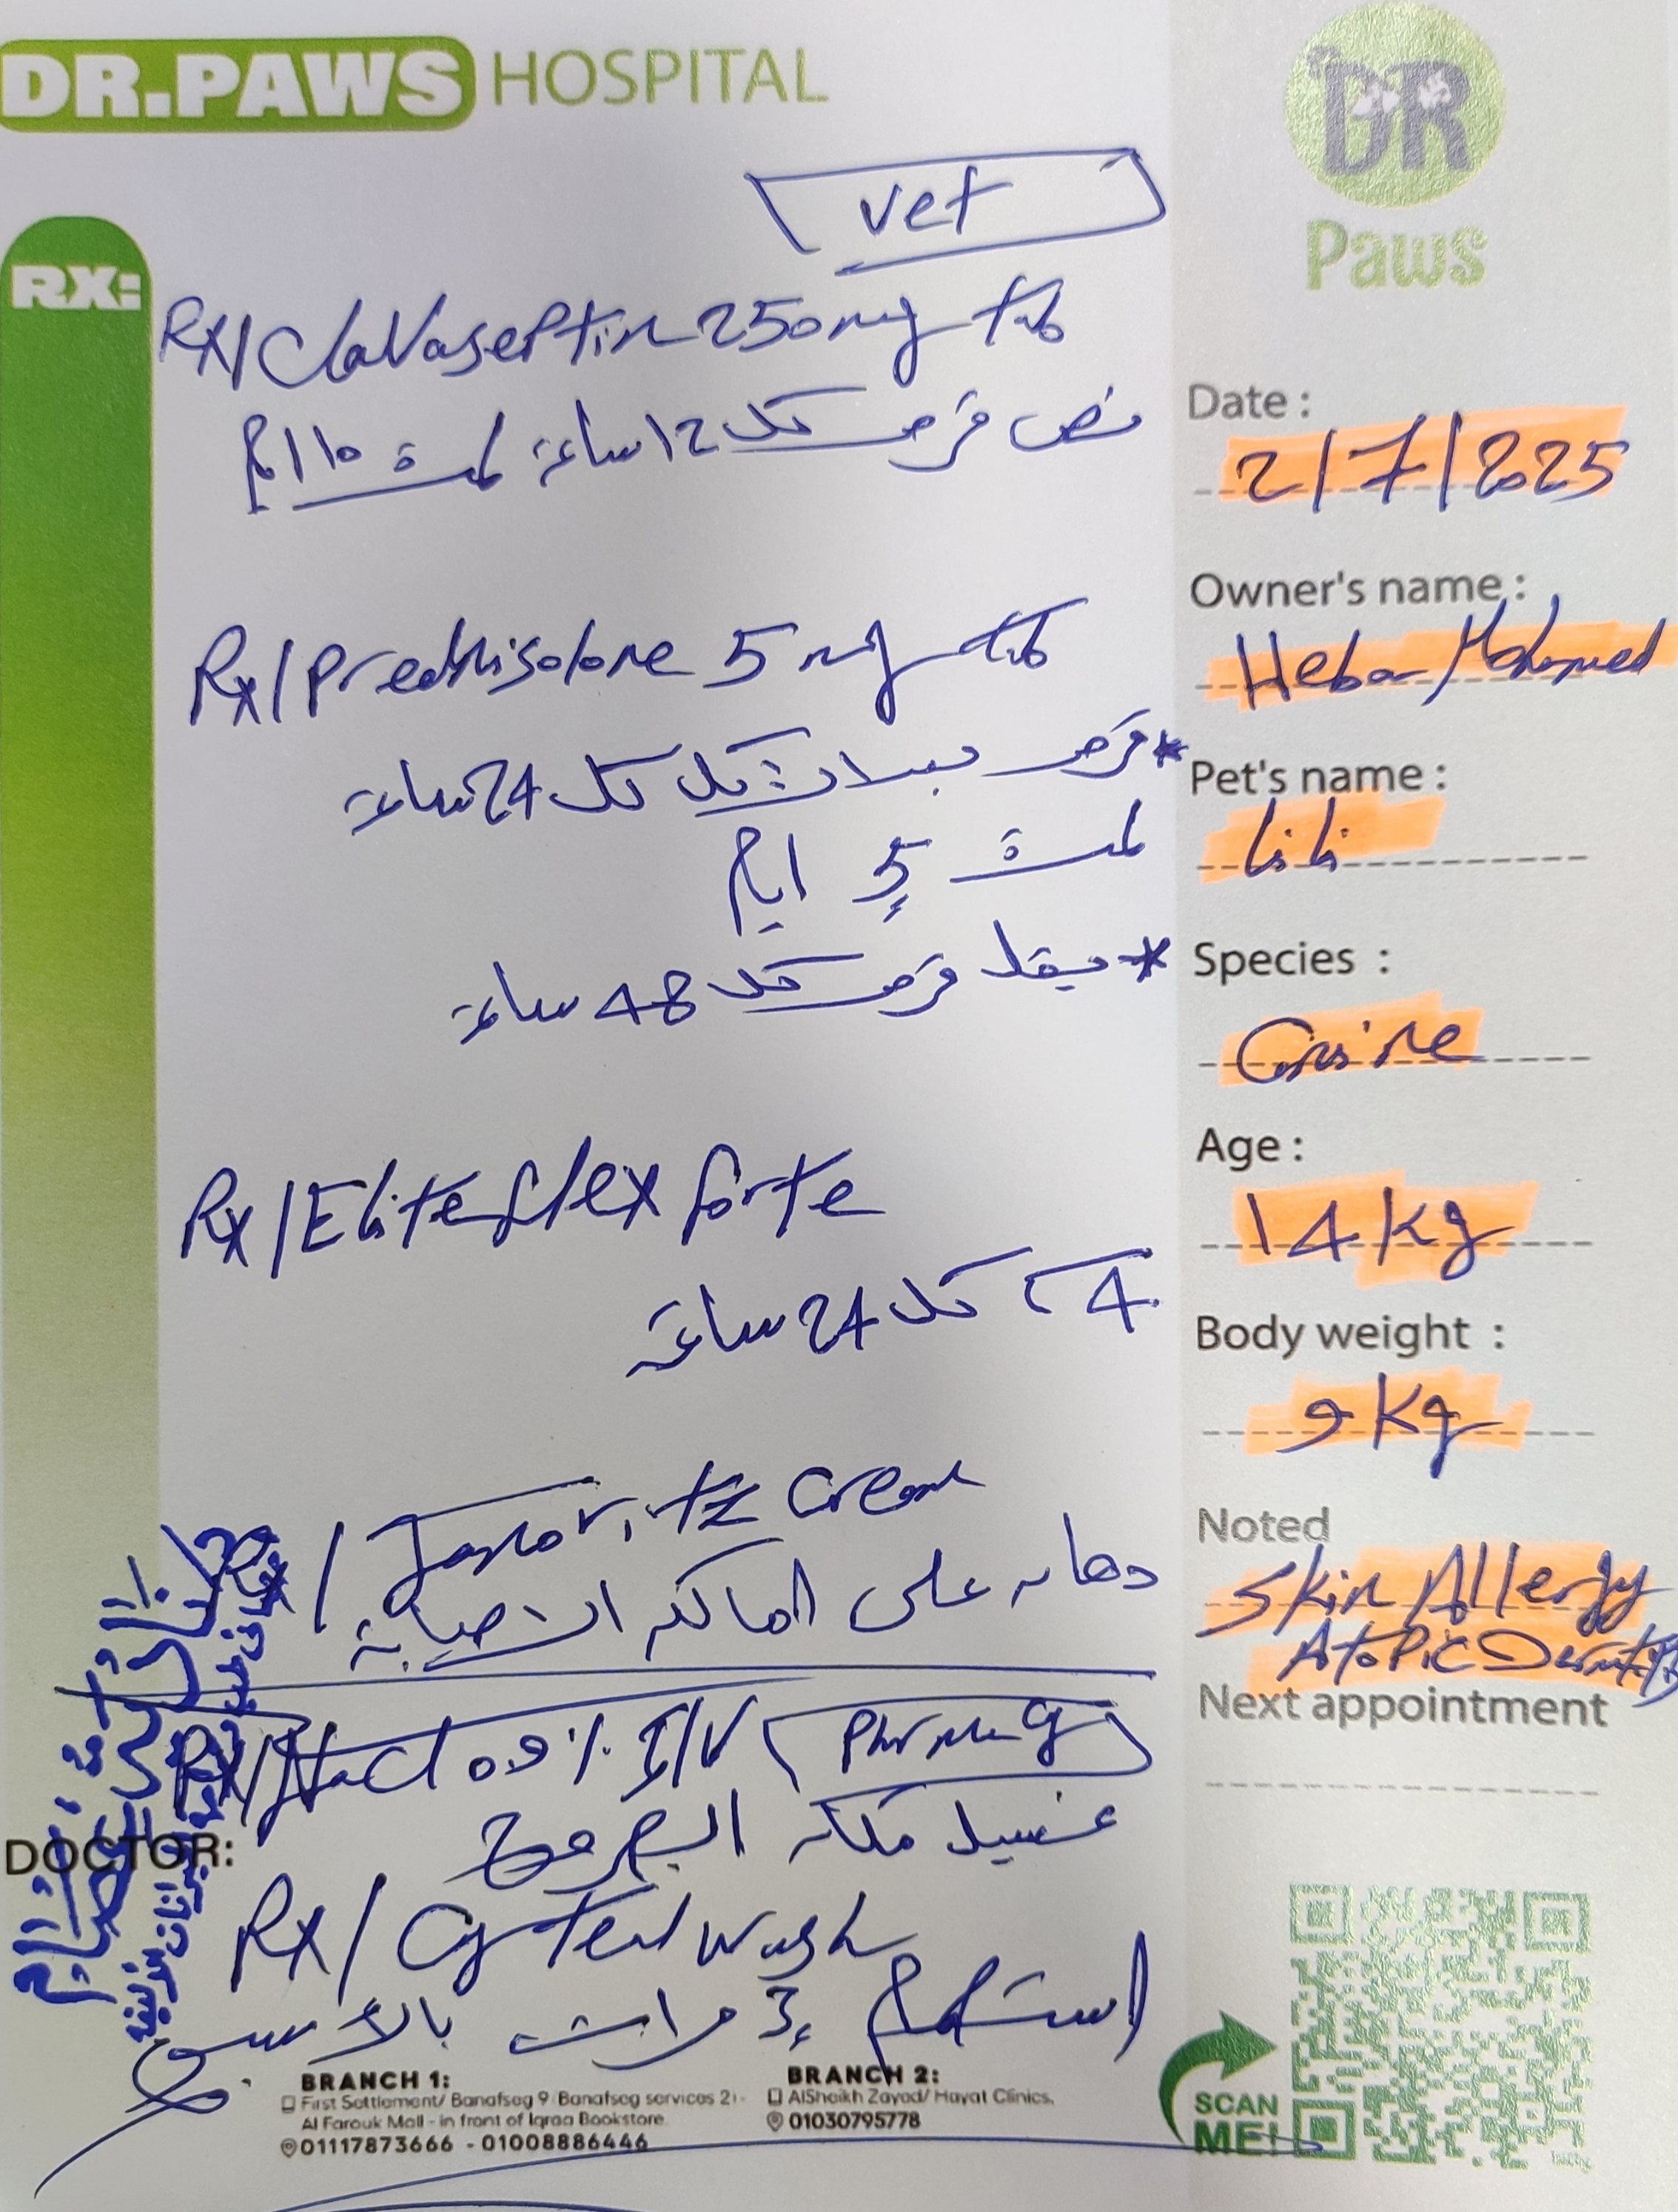 DR.PAWS HOSPITAL
DR
Paws
vet
RX:
Rx/Clavaseptin 250mg tab
نص قرص كل 12 ساعة لمدة 10 ايام
Rx/Prednisolone 5mg tab
* قرص بعد الاكل كل 24 ساعة
لمدة 5 ايام
* قرص كل 48 ساعة
Rx/Elite flex forte
4 كل 24 ساعة
Rx/ cream
دهان على اماكن الاصابة
Rx/Nacl 0.9% I/V
غسيل مكان الجروح
Rx/ wash
استحمام 3 مرات بالاسبوع
DOCTOR:
Date :
2/7/2025
Owner's name :
Heba Mohamed
Pet's name :
Species :
Canine
Age :
14 kg
Body weight :
9 Kg
Noted
Skin Allergy
Atopic Dermatitis
Next appointment
BRANCH 1:
First Settlement/ Banafseg 9 Banafseg services 2 -
Al Farouk Mall - in front of Iqraa Bookstore.
01117873666 - 01008886446
BRANCH 2:
AlSheikh Zayed/ Hayat Clinics.
01030795778
SCAN
ME!